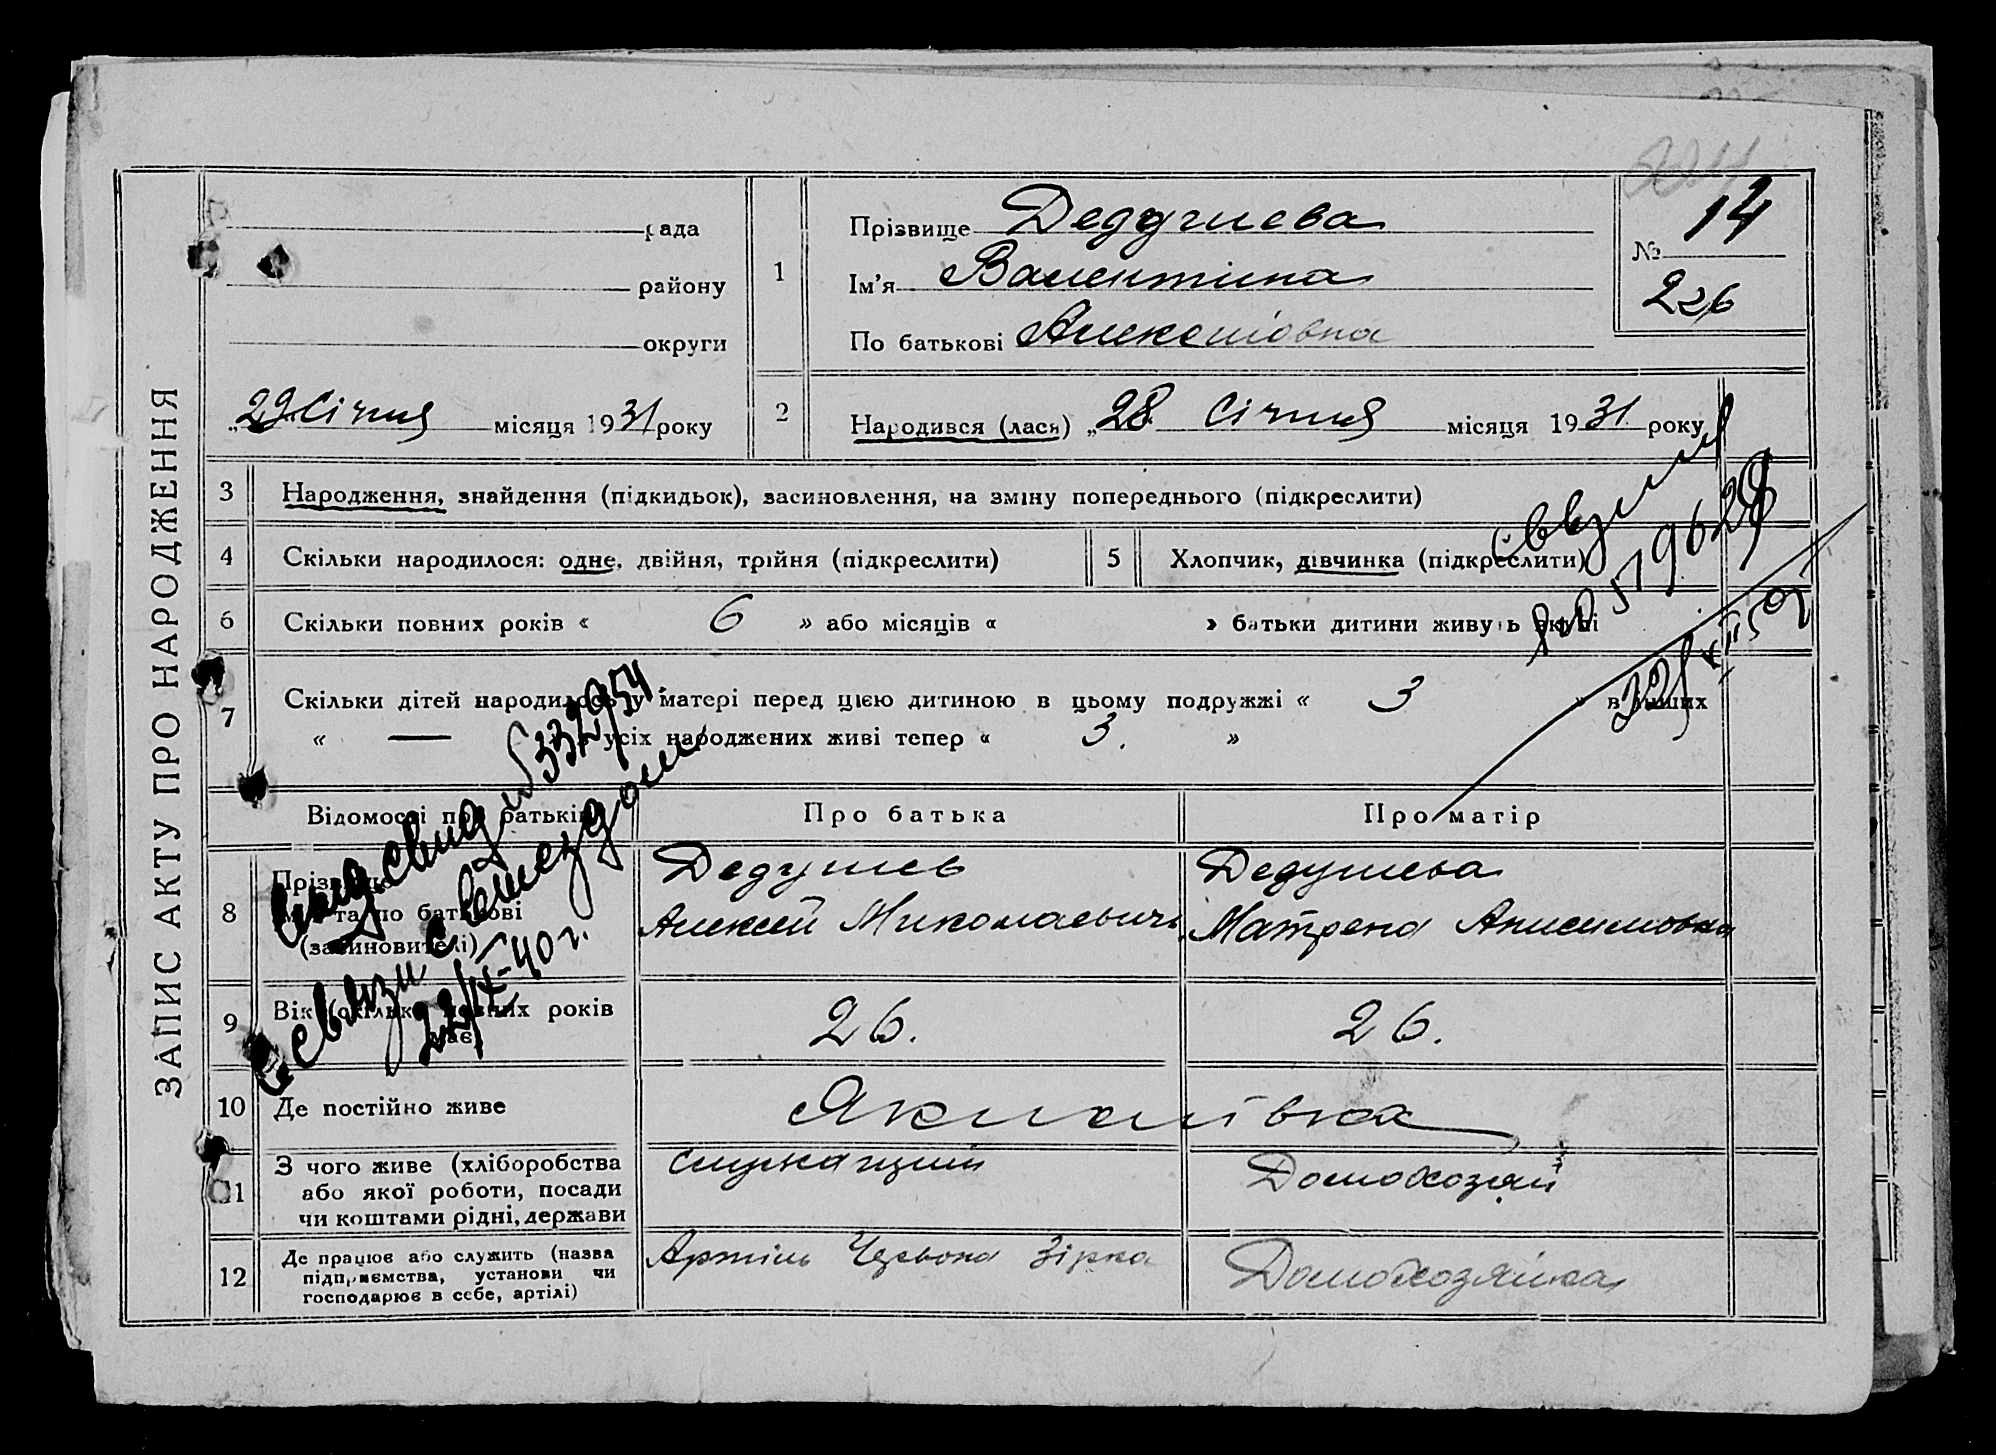 ЗАПИС АКТУ ПРО НАРОДЖЕННЯ
рада
району
округи
„29 Січня місяця 1931 року
1
Прізвище Дедушева
Ім'я Валентина
По батькові Алексеївна
№ 14
226
2
Народився (лася) „28 Січня місяця 1931 року
3 Народження, знайдення (підкидьок), засиновлення, на зміну попереднього (підкреслити)
4 Скільки народилося: одне, двійня, трійня (підкреслити)
5 Хлопчик, дівчинка (підкреслити)
6 Скільки повних років « 6 » або місяців « » батьки дитини живуть вкупі
7 Скільки дітей народилось у матері перед цією дитиною в цьому подружжі « 3 » в інших
« — усіх народжених живі тепер « 3. »
Відомості про батьків
Про батька
Про матір
8 Прізвище
та по батькові
(засиновителі)
Дедушев
Алексей Николаевич
Дедушева
Матрена Анисимовна
9 Вік (скільки повних років
має)
26.
26.
10 Де постійно живе
Якимівка
11 З чого живе (хліборобства
або якої роботи, посади
чи коштами рідні, держави
Домохозяй
12 Де працює або служить (назва
підприємства, установи чи
господарює в себе, артілі)
Артіль Червона Зірка
Домохозяйка
№ 332954
в связи с
22/IX-40 г.
579629